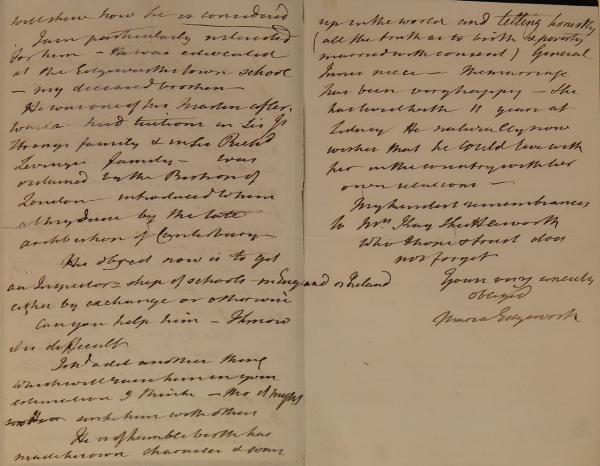 will shew how he is considered
I am particularly interested
for him - He was educated
at the Edgeworthstown school
- my deceased brothers -
He was one of his Masters after.
wards head tuition in Sir Js
family & in Sir Richd
Levinge family - was
ordained by the Bishop of
London - introduced to him
at my desire by the late
archbishop of Canterbury -
His object now is to get
an Inspector-ship of schools in England or Ireland
either by exchange or otherwise
Can you help him - I know
it is difficult
I shd add another thing
which will raise him in your
estimation I think - tho it might
sink him with others
He is of humble birth has
made his own character & way
up in the world and telling honestly
(all the truth as to birth & poverty
married with consent) General
niece - The marriage
has been very happy - She
has lived with 11 years at
Sidney He naturally now
wishes that he could live with
her in the country with her
own relations -
My kindest remembrances
to Mrs Kay Shuttleworth
who I hope & trust does
not forget
Yours very sincerely
obliged
Maria Edgeworth